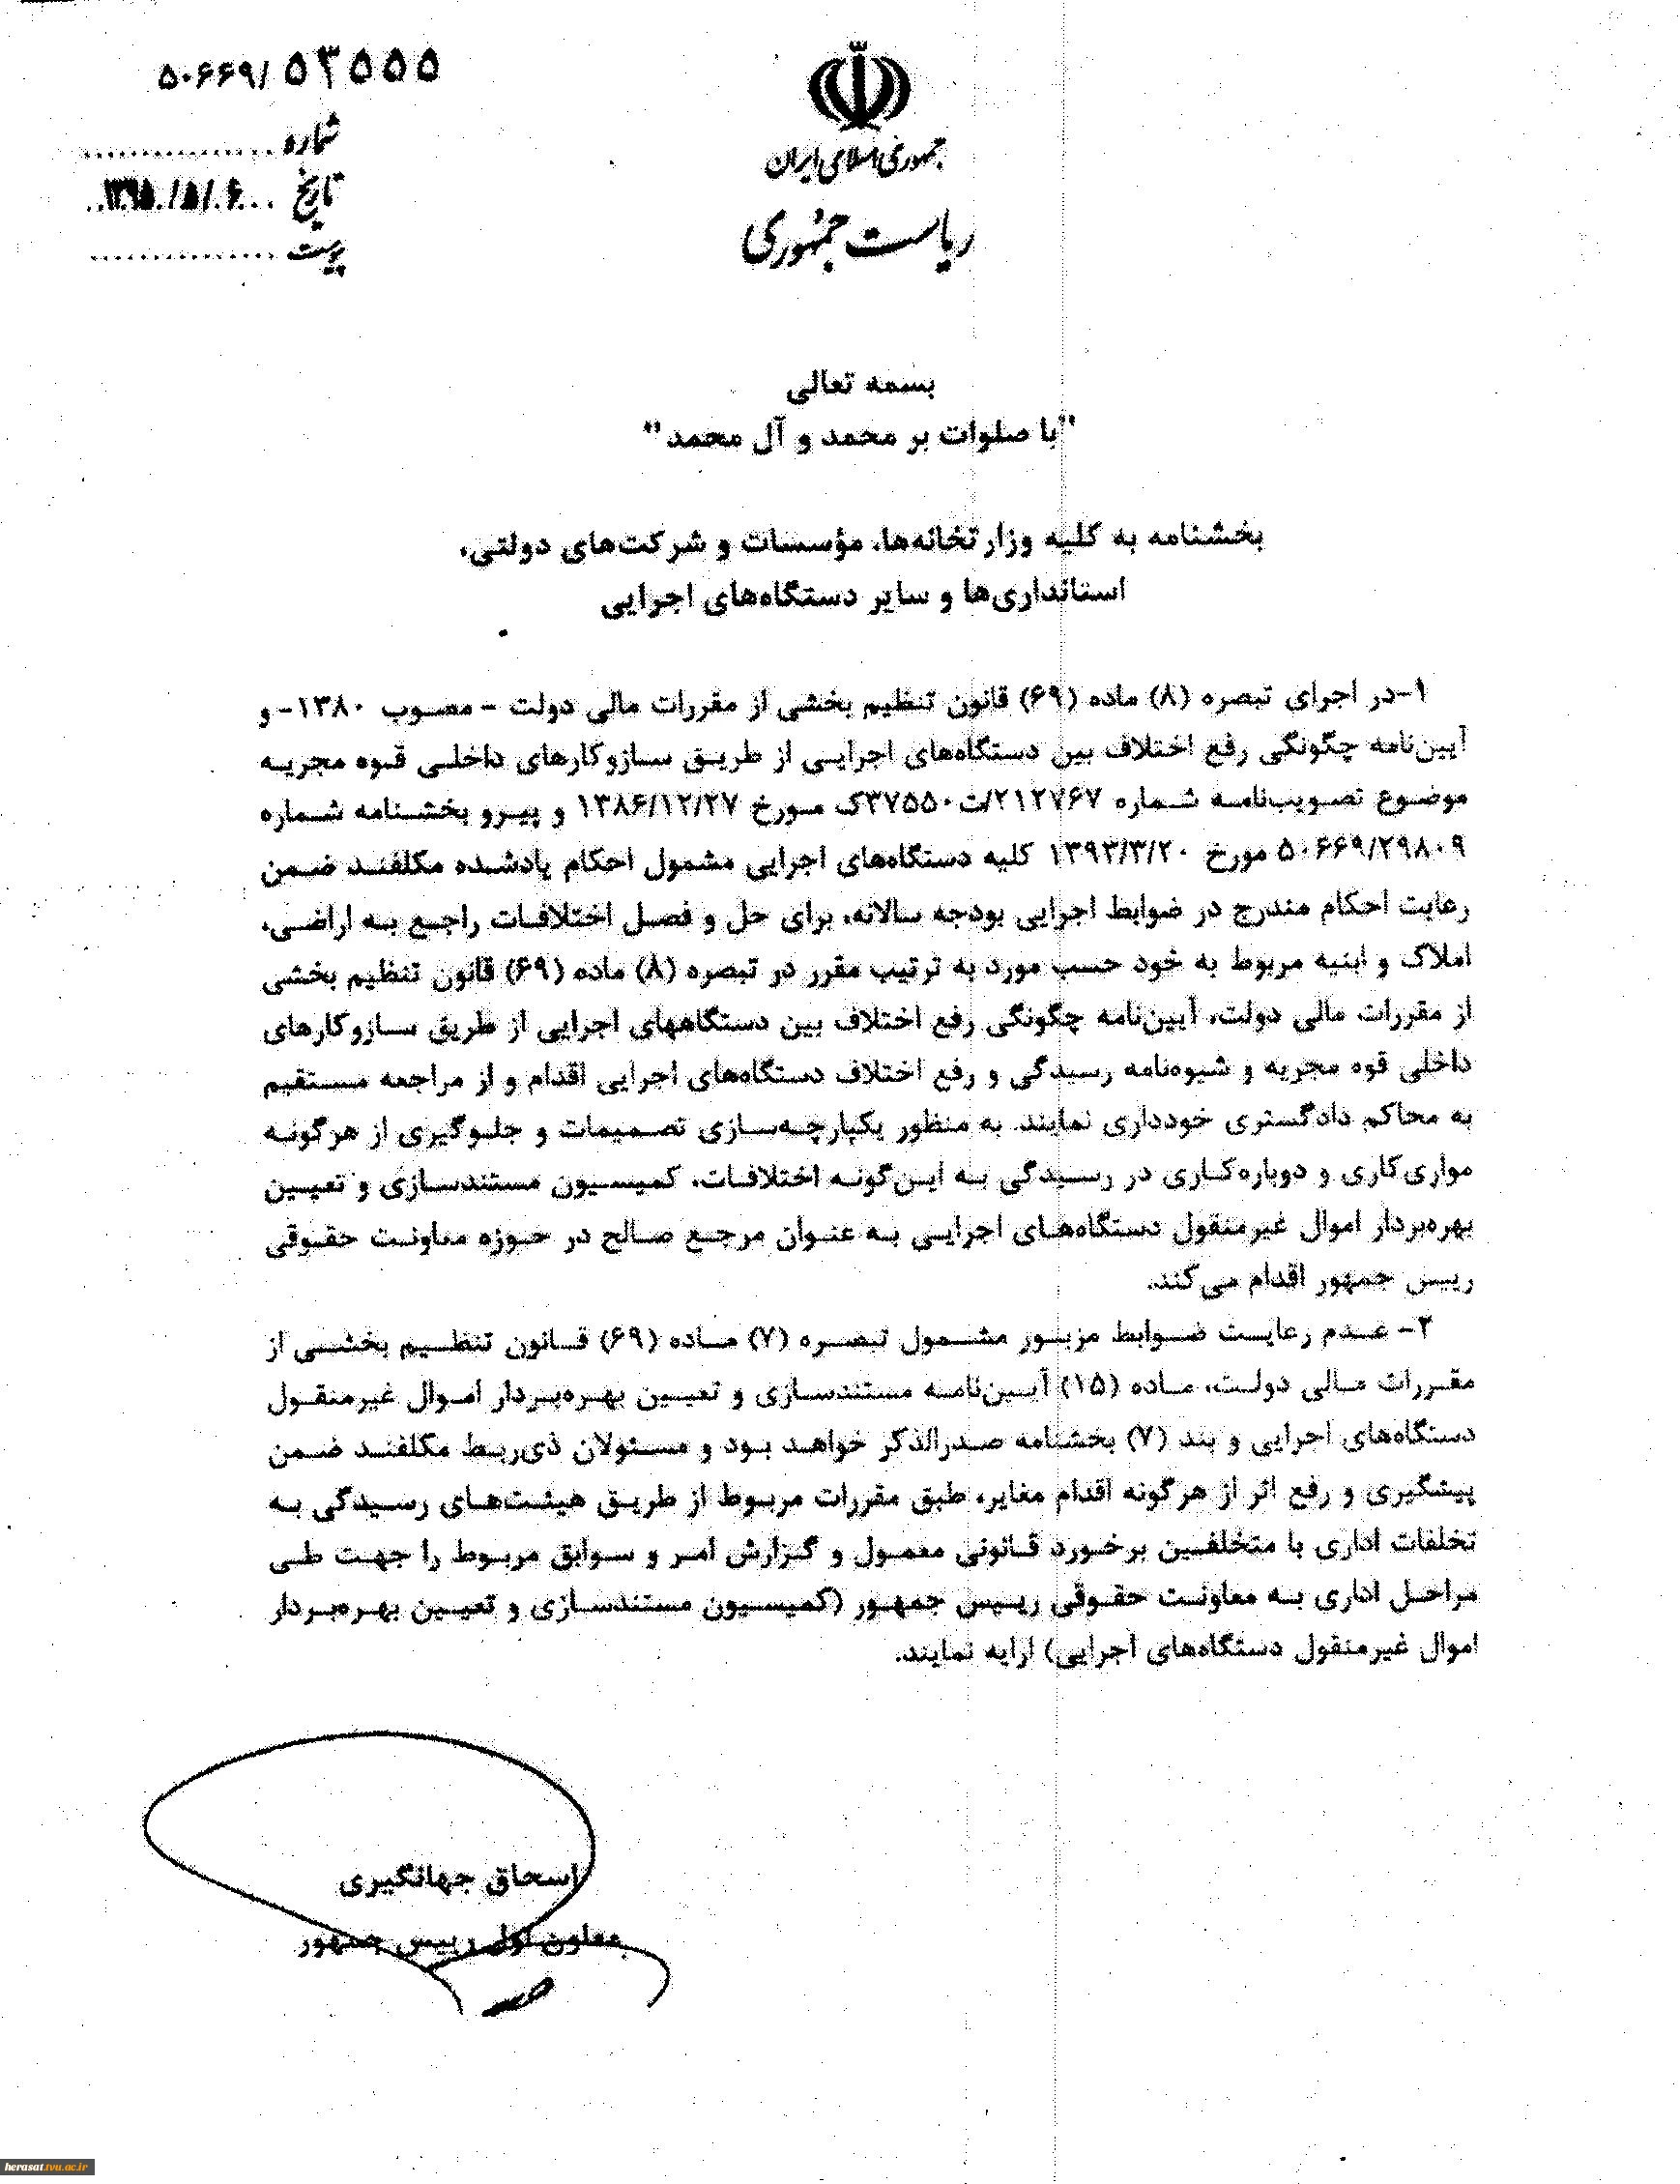 ۵۰۶۶۹/۵۳۵۵۵
شماره
تاریخ ۱۳۹۵/۵/۶
پیوست
جمهوری اسلامی ایران
ریاست جمهوری
بسمه تعالی
"با صلوات بر محمد و آل محمد"
بخشنامه به کلیه وزارتخانه‌ها، مؤسسات و شرکت‌های دولتی،
استانداری‌ها و سایر دستگاه‌های اجرایی
۱-در اجرای تبصره (۸) ماده (۶۹) قانون تنظیم بخشی از مقررات مالی دولت - مصوب ۱۳۸۰- و
آیین‌نامه چگونگی رفع اختلاف بین دستگاه‌های اجرایی از طریق سازوکارهای داخلی قوه مجریه
موضوع تصویب‌نامه شماره ۲۱۲۷۶۷/ت۳۷۵۵۰ک مورخ ۱۳۸۶/۱۲/۲۷ و پیرو بخشنامه شماره
۵۰۶۶۹/۲۹۸۰۹ مورخ ۱۳۹۳/۳/۲۰ کلیه دستگاه‌های اجرایی مشمول احکام یادشده مکلفند ضمن
رعایت احکام مندرج در ضوابط اجرایی بودجه سالانه، برای حل و فصل اختلافات راجع به اراضی،
املاک و ابنیه مربوط به خود حسب مورد به ترتیب مقرر در تبصره (۸) ماده (۶۹) قانون تنظیم بخشی
از مقررات مالی دولت، آیین‌نامه چگونگی رفع اختلاف بین دستگاههای اجرایی از طریق سازوکارهای
داخلی قوه مجریه و شیوه‌نامه رسیدگی و رفع اختلاف دستگاه‌های اجرایی اقدام و از مراجعه مستقیم
به محاکم دادگستری خودداری نمایند. به منظور یکپارچه‌سازی تصمیمات و جلوگیری از هرگونه
موازی‌کاری و دوباره‌کاری در رسیدگی به این‌گونه اختلافات، کمیسیون مستندسازی و تعیین
بهره‌بردار اموال غیرمنقول دستگاه‌های اجرایی به عنوان مرجع صالح در حوزه معاونت حقوقی
رییس جمهور اقدام می‌کند.
۲- عدم رعایت ضوابط مزبور مشمول تبصره (۷) ماده (۶۹) قانون تنظیم بخشی از
مقررات مالی دولت، ماده (۱۵) آیین‌نامه مستندسازی و تعیین بهره‌بردار اموال غیرمنقول
دستگاه‌های اجرایی و بند (۷) بخشنامه صدرالذکر خواهد بود و مسئولان ذی‌ربط مکلفند ضمن
پیشگیری و رفع اثر از هرگونه اقدام مغایر، طبق مقررات مربوط از طریق هیئت‌های رسیدگی به
تخلفات اداری با متخلفین برخورد قانونی معمول و گزارش امر و سوابق مربوط را جهت طی
مراحل اداری به معاونت حقوقی رییس جمهور (کمیسیون مستندسازی و تعیین بهره‌بردار
اموال غیرمنقول دستگاه‌های اجرایی) ارایه نمایند.
اسحاق جهانگیری
معاون اول رییس جمهور
herasat.tvu.ac.ir